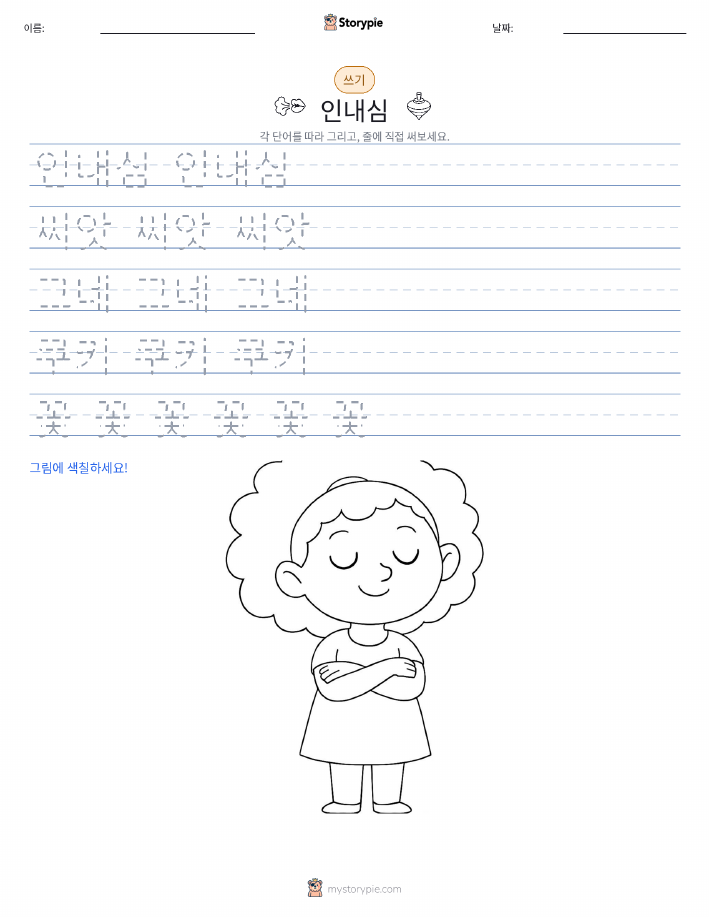 이름:
Storypie
날짜:
쓰기
인내심
각 단어를 따라 그리고, 줄에 직접 써보세요.
인내심 인내심
씨앗 씨앗 씨앗
그네 그네 그네
쿠키 쿠키 쿠키
꽃 꽃 꽃 꽃 꽃 꽃
그림에 색칠하세요!
mystorypie.com